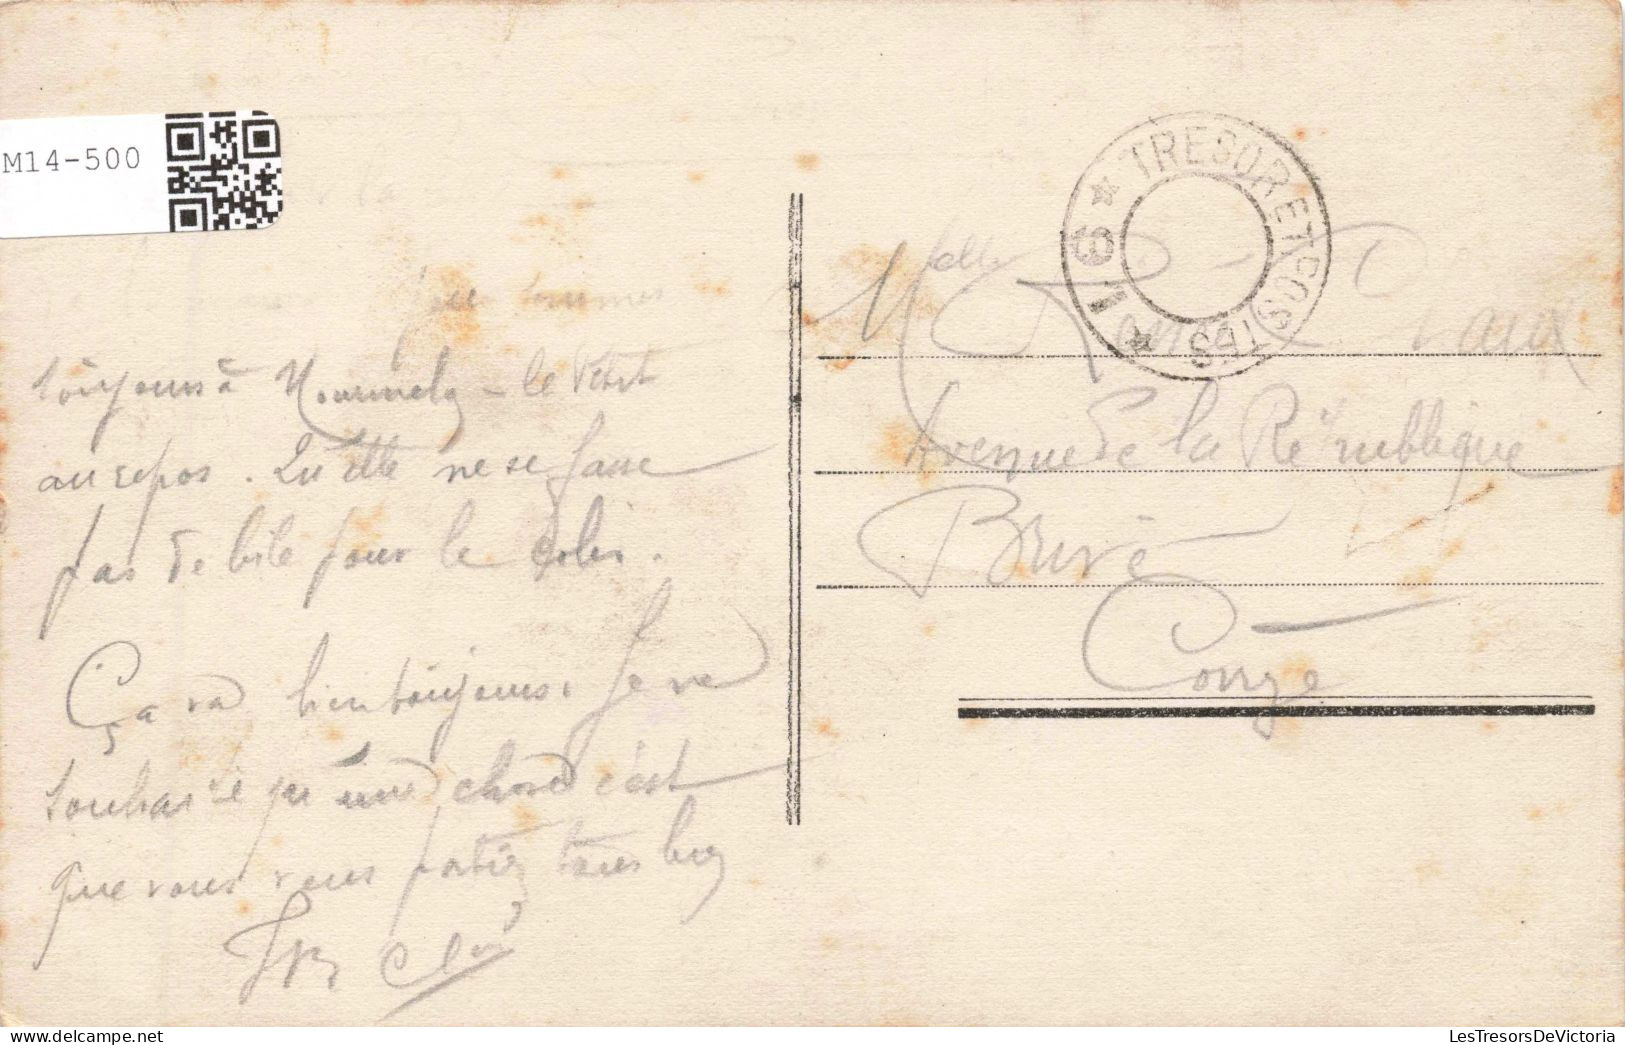 M14-500
TRESOR ET POSTES
* 16 *
sommes
toujours à Mourmelon-le Petit
au repos. Qu'elle ne se fasse
pas de bile pour le colis.
Ça va bien toujours. Je ne
souhaite qu'une chose c'est
que vous vous portiez tous bien
Melle
Avenue de la République
Brive
Corrèze
LesTresorsDeVictoria.com